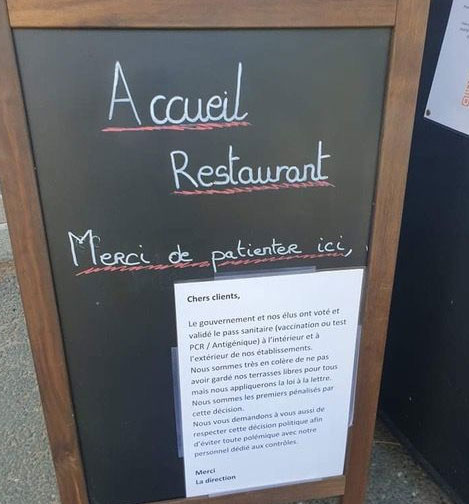 Accueil
Restaurant
Merci de patienter ici,
Chers clients,
Le gouvernement et nos élus ont voté et
validé le pass sanitaire (vaccination ou test
PCR / Antigénique) à l'intérieur et à
l'extérieur de nos établissements.
Nous sommes très en colère de ne pas
avoir gardé nos terrasses libres pour tous
mais nous appliquerons la loi à la lettre.
Nous sommes les premiers pénalisés par
cette décision.
Nous vous demandons à vous aussi de
respecter cette décision politique afin
d'éviter toute polémique avec notre
personnel dédié aux contrôles.
Merci
La direction